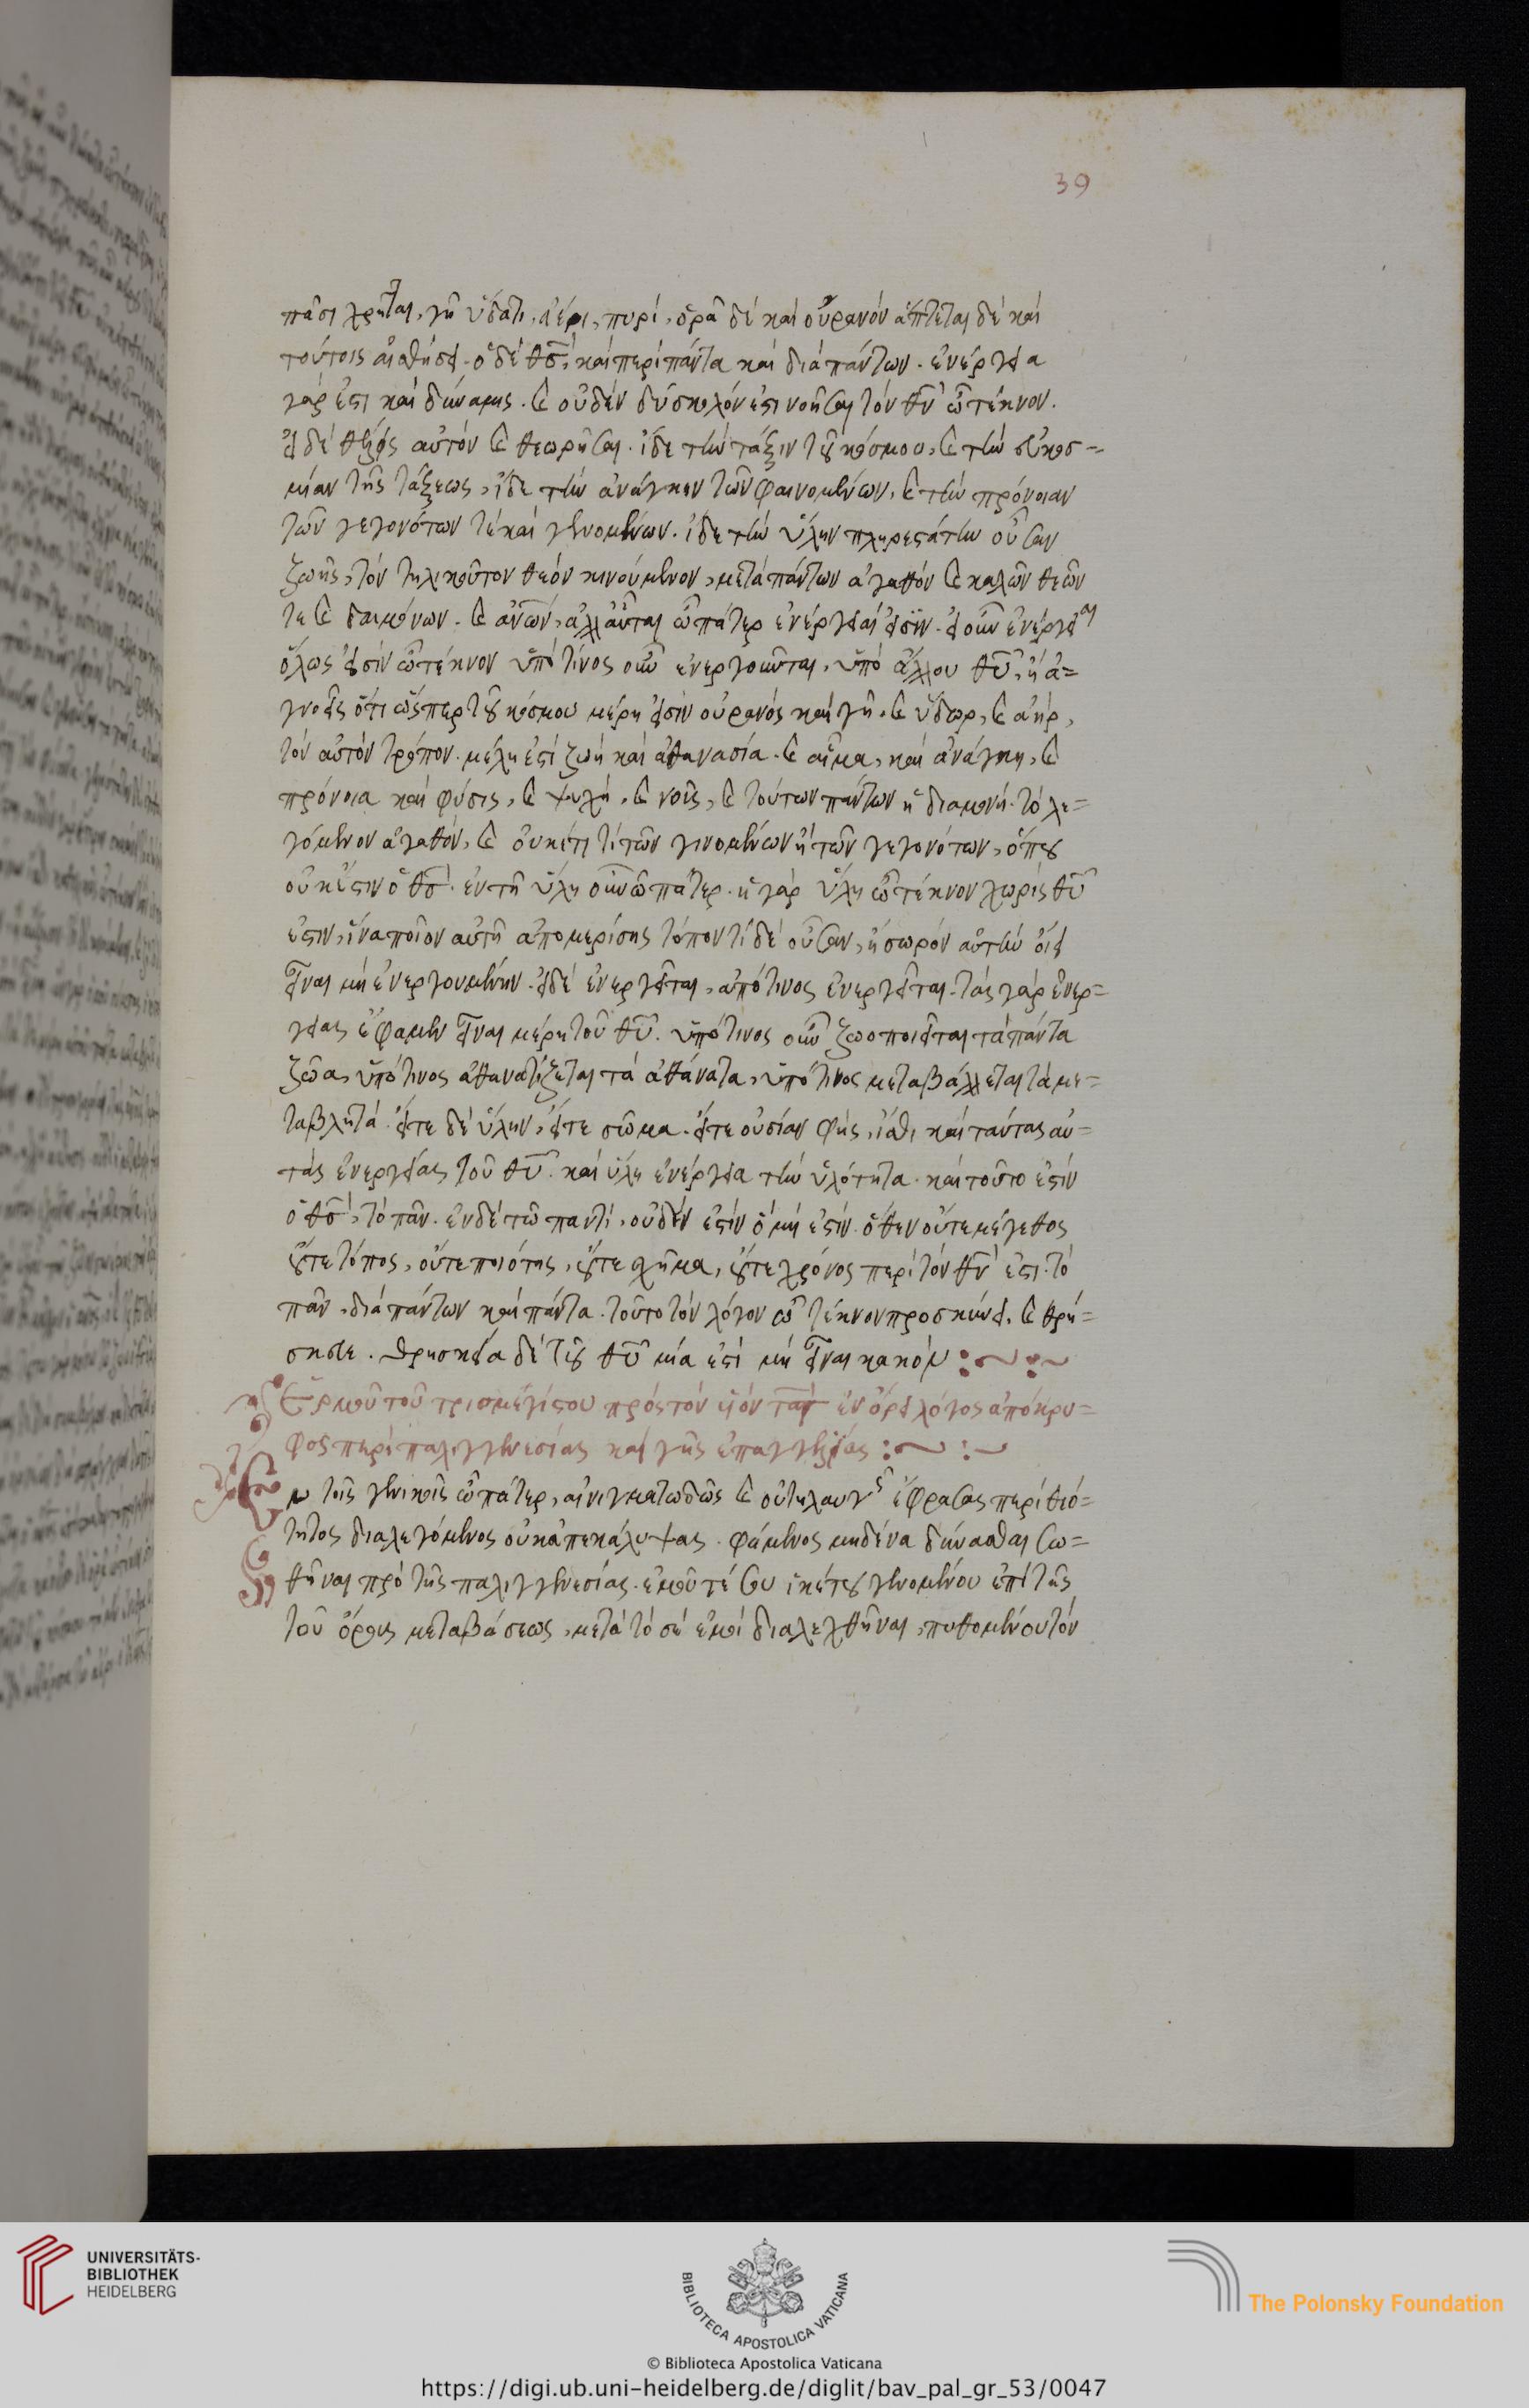 39
πᾶσι χρῆται, γῆ ὕδατι, ἀέρι, πυρί, ὁρᾶ δὲ καὶ οὐρανόν ἅπτεται δὲ καὶ
τούτοις αἰσθήσει. ὁ δὲ θς, καὶ περὶ πάντα καὶ διὰ πάντων. ἐνέργεια
γάρ ἐστι καὶ δύναμις. καὶ οὐδὲν δύσκολόν ἐστι νοῆσαι τὸν θν ὦ τέκνον.
εἰ δὲ θέλεις αὐτὸν καὶ θεωρῆσαι. ἴδε τὴν τάξιν τοῦ κόσμου, καὶ τὴν εὐκοσ=
μίαν τῆς τάξεως, ἴδε τὴν ἀνάγκην τῶν φαινομένων, καὶ τὴν πρόνοιαν
τῶν γεγονότων τὲ καὶ γενομένων. ἴδε τὴν ὕλην πληρεστάτην οὖσαν
ζωῆς, τὸν τηλικοῦτον θεὸν κινούμενον, μετὰ πάντων ἀγαθὸν καὶ καλῶν θεῶν
τε καὶ δαιμόνων. καὶ ἀνων, ἀλλ' αὗται ὦ πάτερ ἐνέργειαί εἰσιν. εἰ οὖν ἐνέργειαι
ὅλως εἰσὶν ὦ τέκνον ὑπὸ τίνος οὖν ἐνεργοῦνται, ὑπὸ ἄλλου θυ, ἢ ἀ=
γνοεῖς ὅτι ὥσπερ τοῦ κόσμου μέρη εἰσὶν οὐρανὸς καὶ γῆ, καὶ ὕδωρ, καὶ ἀὴρ,
τὸν αὐτὸν τρόπον. μέλη ἐστὶ ζωὴ καὶ ἀθανασία. καὶ αἷμα, καὶ ἀνάγκη, καὶ
πρόνοια καὶ φύσις, καὶ ψυχὴ, καὶ νοῦς, καὶ τούτων πάντων ἡ διαμονὴ. τὸ λε=
γόμενον ἀγαθόν, καὶ οὐκέτι τί τῶν γινομένων ἢ τῶν γεγονότων, ὅπου
οὐκ ἔστιν ὁ θς. ἐν τῆ ὕλη οὖν ὦ πάτερ. ἡ γὰρ ὕλη ὦ τέκνον χωρὶς θυ
ἐστιν, ἵνα ποῖον αὐτῆ ἀπομερίσης τόπον τί δὲ οὖσαν, ἢ σωρὸν αὐτὴν οἴει
εἶναι μὴ ἐνεργουμένην. εἰ δὲ ἐνεργεῖται, ἀπό τινος ἐνεργεῖται. τὰς γὰρ ἐνερ=
γείας ἔφαμεν εἶναι μέρη τοῦ θυ. ὑπό τινος οὖν ζωοποιεῖται τὰ πάντα
ζῶα, ὑπό τινος ἀθανατίζεται τὰ ἀθάνατα, ὑπό τινος μεταβάλλεται τὰ με=
ταβλητά. εἴτε δὲ ὕλην, εἴτε σῶμα. εἴτε οὐσίαν φὴς, ἴσθι καὶ ταύτας αὐ=
τὰς ἐνεργείας τοῦ θυ. καὶ ὕλη ἐνέργεια τὴν ὑλότητα. καὶ τοῦτο ἐστὶν
ὁ θς, τὸ πᾶν. ἐν δὲ τῶ παντὶ, οὐδέν ἐστιν ὃ μὴ ἐστίν. ὅθεν οὔτε μέγεθος
οὔτε τόπος, οὔτε ποιότης, οὔτε σχῆμα, οὔτε χρόνος περὶ τὸν θν ἐστι. τὸ
πᾶν, διὰ πάντων καὶ πάντα. τοῦτο τὸν λόγον ὦ τέκνον προσκύνει, καὶ θρή=
σκευε. θρησκεία δὲ τοῦ θυ μία ἐστὶ μὴ εἶναι κακόν :~:~
Ἑρμοῦ τοῦ τρισμεγίστου πρὸς τὸν υἱὸν τατ ἐν ὄρει λόγος ἀπόκρυ=
φος περὶ παλιγγενεσίας καὶ γῆς ἐπαγγελίας :~ :~
Ἐν τοῖς γενικοῖς ὦ πάτερ, αἰνιγματωδῶς καὶ οὐ τηλαυγῶς ἔφρασας περὶ θειό=
τητος διαλεγόμενος οὐκ ἀπεκάλυψας. φάμενος μηδένα δύνασθαι σω=
θῆναι πρὸ τῆς παλιγγενεσίας. ἐμοῦ τέ σου ἱκέτου γενομένου ἐπὶ τῆς
τοῦ ὄρους μεταβάσεως, μετὰ τὸ σὲ ἐμοὶ διαλεχθῆναι, πυθομένου τὸν
UNIVERSITÄTS-
BIBLIOTHEK
HEIDELBERG
BIBLIOTECA APOSTOLICA VATICANA
The Polonsky Foundation
© Biblioteca Apostolica Vaticana
https://digi.ub.uni-heidelberg.de/diglit/bav_pal_gr_53/0047